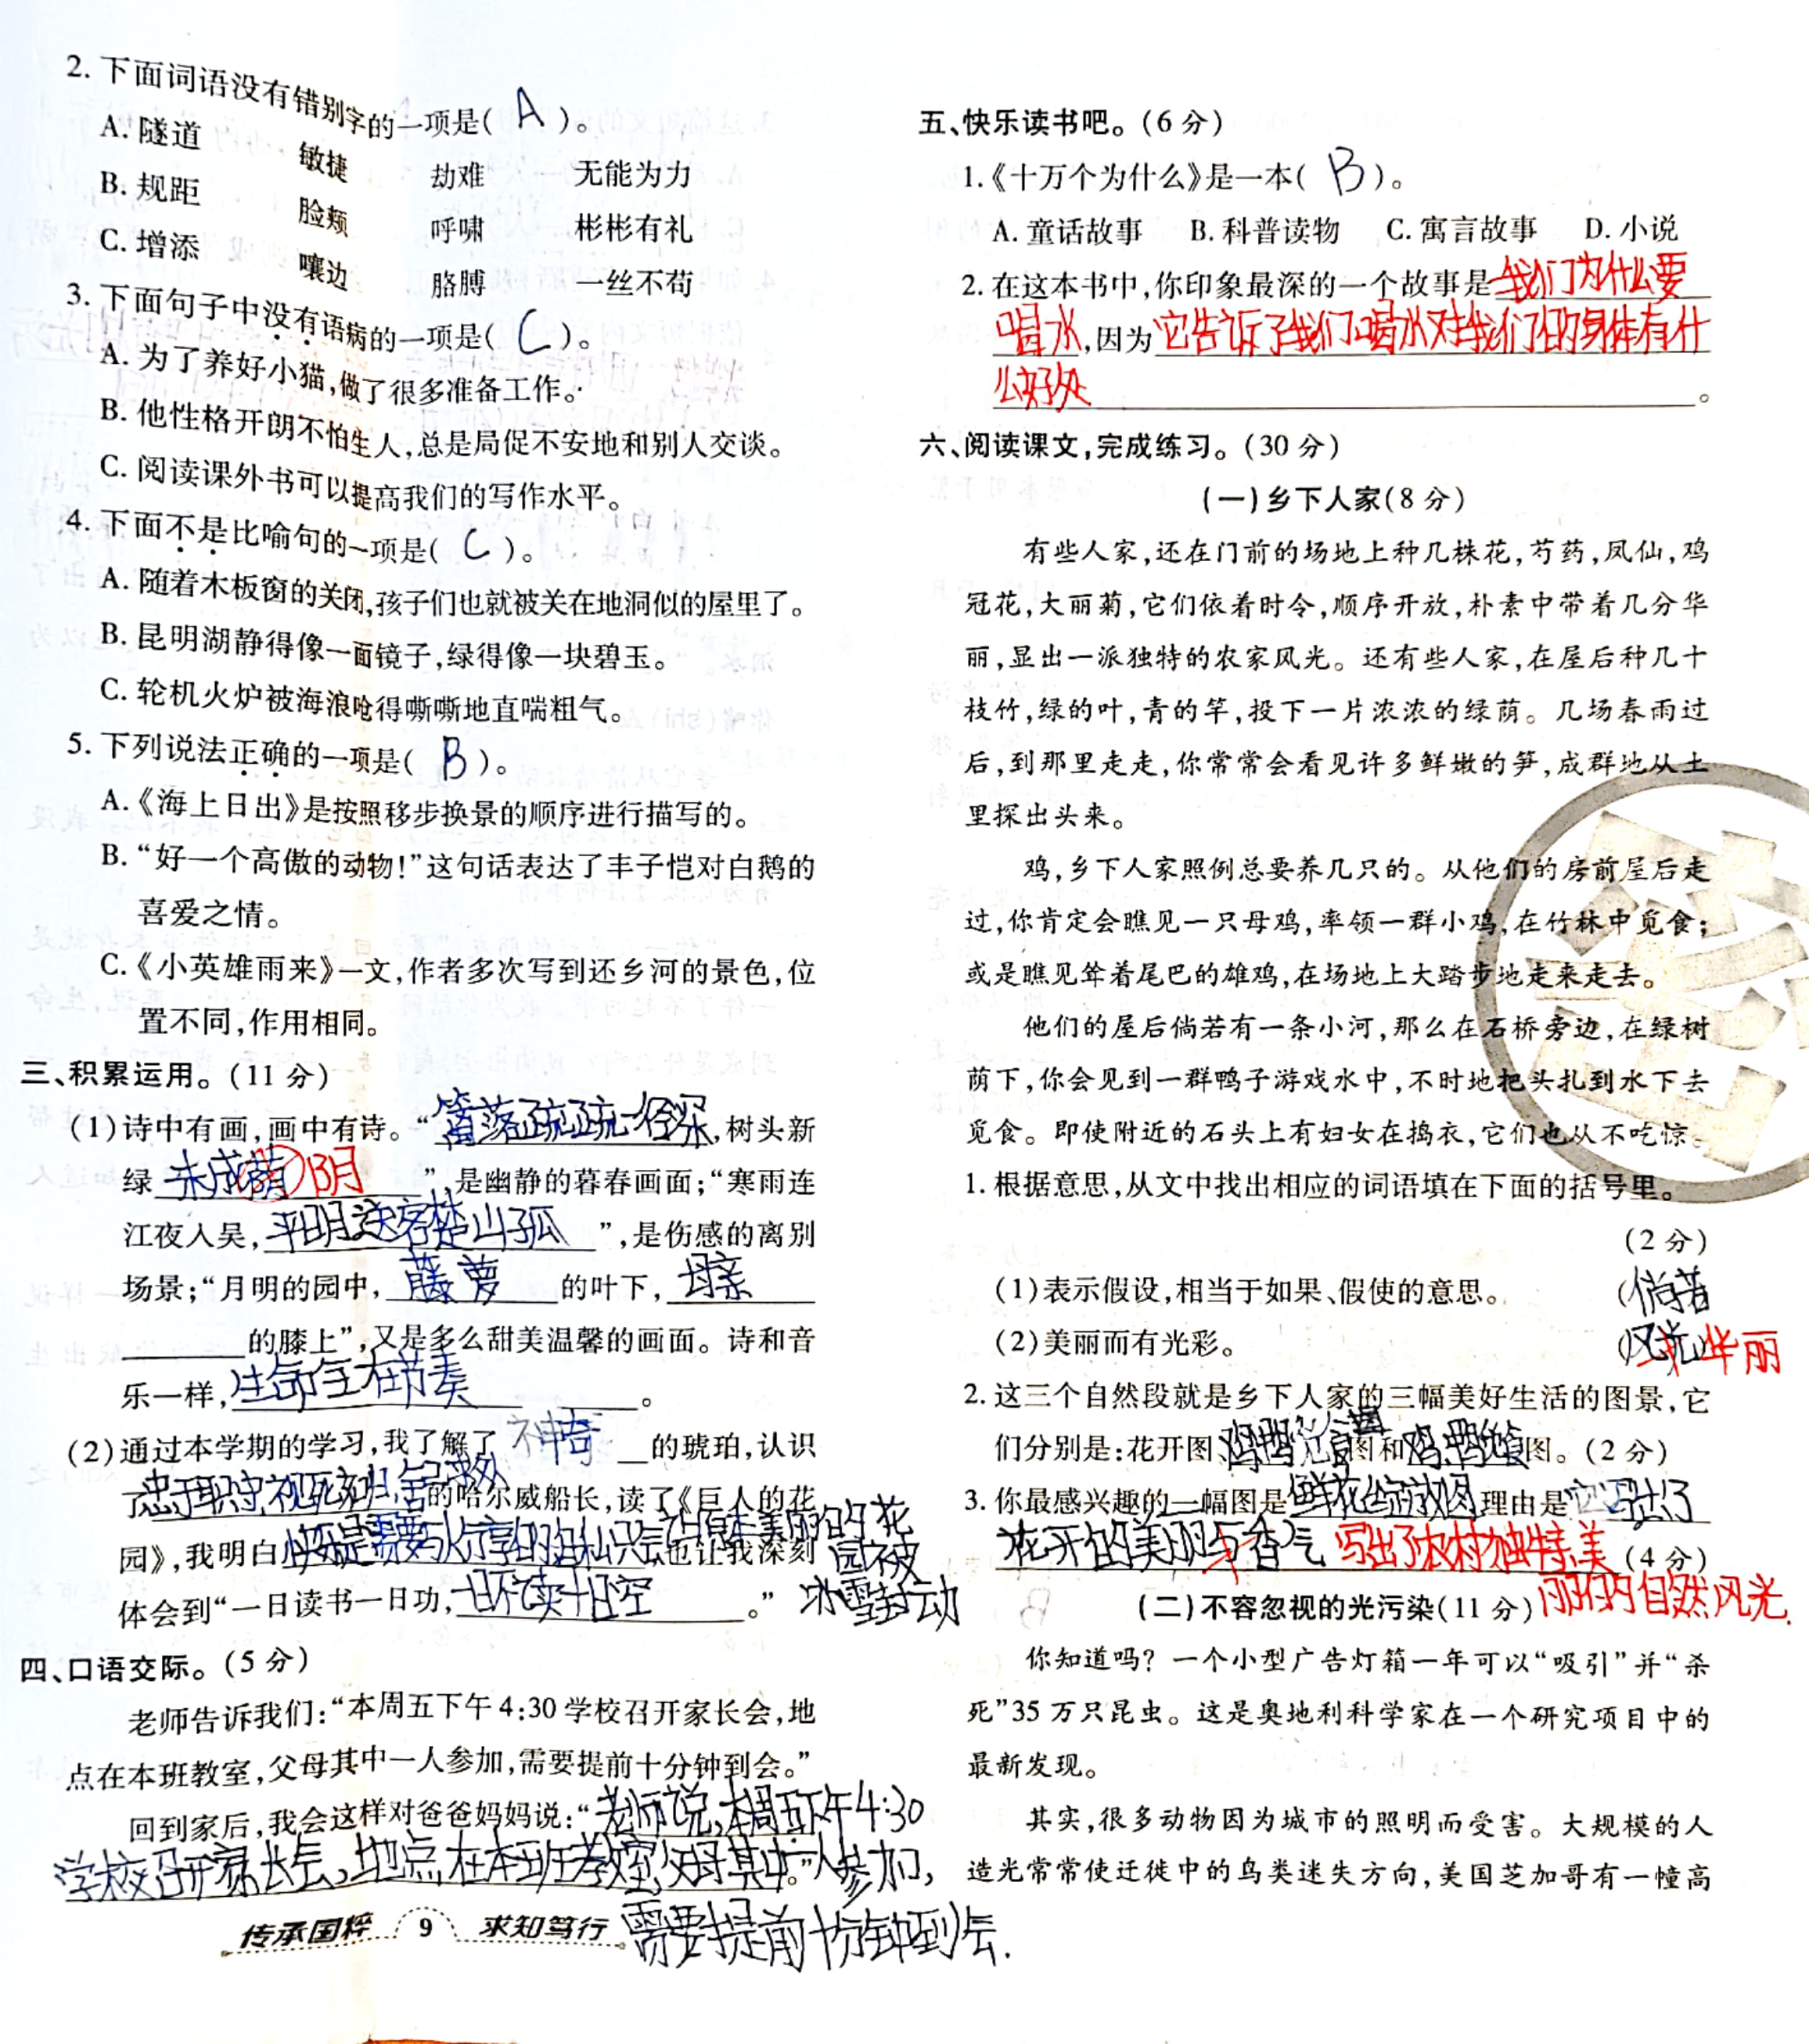 2. 下面词语没有错别字的一项是( A )。
A. 隧道 敏捷 劫难 无能为力
B. 规距 脸颊 呼啸 彬彬有礼
C. 增添 嚷边 胳膊 一丝不苟
3. 下面句子中没有语病的一项是( C )。
A. 为了养好小猫,做了很多准备工作。
B. 他性格开朗不怕生人,总是局促不安地和别人交谈。
C. 阅读课外书可以提高我们的写作水平。
4. 下面不是比喻句的一项是( C )。
A. 随着木板窗的关闭,孩子们也就被关在地洞似的屋里了。
B. 昆明湖静得像一面镜子,绿得像一块碧玉。
C. 轮机火炉被海浪呛得嘶嘶地直喘粗气。
5. 下列说法正确的一项是( B )。
A.《海上日出》是按照移步换景的顺序进行描写的。
B. “好一个高傲的动物!”这句话表达了丰子恺对白鹅的
喜爱之情。
C.《小英雄雨来》一文,作者多次写到还乡河的景色,位
置不同,作用相同。
三、积累运用。(11 分)
(1)诗中有画,画中有诗。“篱落疏疏一径深,树头新
绿未成荫 阴”,是幽静的暮春画面;“寒雨连
江夜入吴,平明送客楚山孤”,是伤感的离别
场景;“月明的园中,藤萝的叶下,母亲
的膝上”,又是多么甜美温馨的画面。诗和音
乐一样,生命全在节奏。
(2)通过本学期的学习,我了解了神奇的琥珀,认识
了忠于职守,视死如归,舍己救人的哈尔威船长,读了《巨人的花
园》,我明白快乐是需要与人分享的,自私只会让原本美丽的花
园被
冰雪封动
也让我深刻
体会到“一日读书一日功,一日不读十日空。”
四、口语交际。(5 分)
老师告诉我们:“本周五下午 4:30 学校召开家长会,地
点在本班教室,父母其中一人参加,需要提前十分钟到会。”
回到家后,我会这样对爸爸妈妈说:“老师说,本周五下午4:30
学校召开家长会,地点在本班教室,父母其中一人参加,
需要提前十分钟到会.
。”
传承国粹 9 求知笃行
五、快乐读书吧。(6 分)
1.《十万个为什么》是一本( B )。
A. 童话故事 B. 科普读物 C. 寓言故事 D. 小说
2. 在这本书中,你印象最深的一个故事是我们为什么要
喝水,因为它告诉了我们喝水对我们的身体有什
么好处。
六、阅读课文,完成练习。(30 分)
(一)乡下人家(8 分)
有些人家,还在门前的场地上种几株花,芍药,凤仙,鸡
冠花,大丽菊,它们依着时令,顺序开放,朴素中带着几分华
丽,显出一派独特的农家风光。还有些人家,在屋后种几十
枝竹,绿的叶,青的竿,投下一片浓浓的绿荫。几场春雨过
后,到那里走走,你常常会看见许多鲜嫩的笋,成群地从土
里探出头来。
鸡,乡下人家照例总要养几只的。从他们的房前屋后走
过,你肯定会瞧见一只母鸡,率领一群小鸡,在竹林中觅食;
或是瞧见耸着尾巴的雄鸡,在场地上大踏步地走来走去。
他们的屋后倘若有一条小河,那么在石桥旁边,在绿树
荫下,你会见到一群鸭子游戏水中,不时地把头扎到水下去
觅食。即使附近的石头上有妇女在捣衣,它们也从不吃惊。
1. 根据意思,从文中找出相应的词语填在下面的括号里。
(2 分)
(1)表示假设,相当于如果、假使的意思。 (倘若
(2)美丽而有光彩。 (风光)华丽
2. 这三个自然段就是乡下人家的三幅美好生活的图景,它
们分别是:花开图、图和图。(2 分)
3. 你最感兴趣的一幅图是鲜花绽放图,理由是它写出了
花开的美丽与香气 写出了农村独特,美(4 分)
丽的自然风光.
(二)不容忽视的光污染(11 分)
你知道吗? 一个小型广告灯箱一年可以“吸引”并“杀
死”35 万只昆虫。这是奥地利科学家在一个研究项目中的
最新发现。
其实,很多动物因为城市的照明而受害。大规模的人
造光常常使迁徙中的鸟类迷失方向,美国芝加哥有一幢高